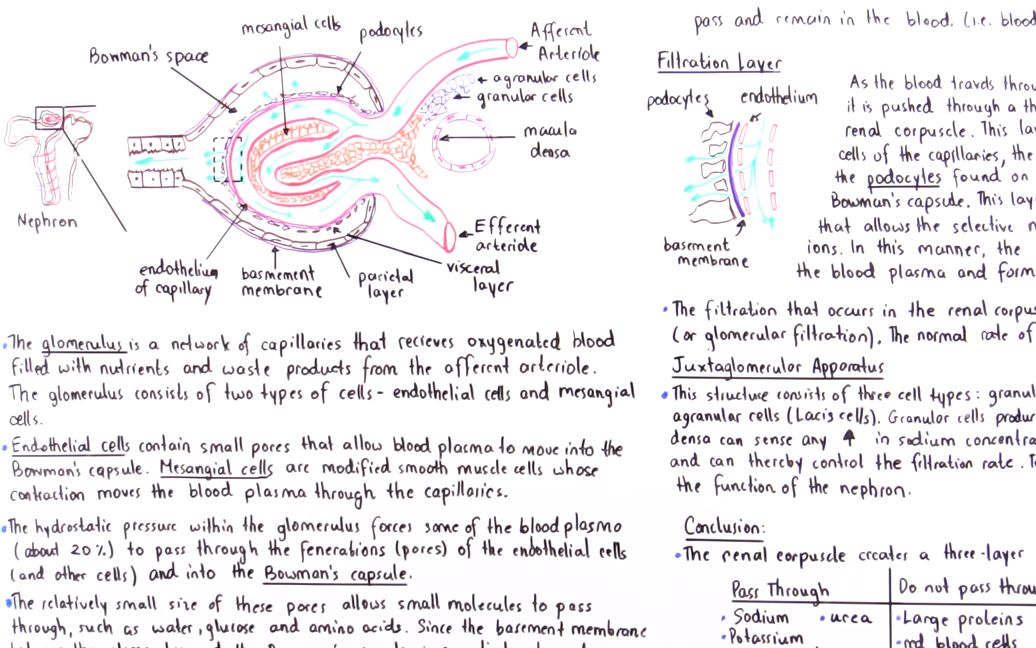 mesangial cells
podocytes
Bowman's space
Afferent
Arteriole
agranular cells
granular cells
macula
densa
Nephron
Efferent
arteriole
endothelium
of capillary
basmement
membrane
parietal
layer
visceral
layer
•The glomerulus is a network of capillaries that recieves oxygenated blood
filled with nutrients and waste products from the afferent arteriole.
The glomerulus consists of two types of cells - endothelial cells and mesangial
cells.
•Endothelial cells contain small pores that allow blood plasma to move into the
Bowman's capsule. Mesangial cells are modified smooth muscle cells whose
contraction moves the blood plasma through the capillaries.
•The hydrostatic pressure within the glomerulus forces some of the blood plasma
(about 20%) to pass through the fenerations (pores) of the endothelial cells
(and other cells) and into the Bowman's capsule.
•The relatively small size of these pores allows small molecules to pass
through, such as water, glucose and amino acids. Since the basement membrane
pass and remain in the blood. (i.e. blood
Filtration Layer
podocytes
endothelium
basement
membrane
As the blood travels throu
it is pushed through a th
renal corpuscle. This la
cells of the capillaries, the
the podocytes found on
Bowman's capsule. This lay
that allows the selective n
ions. In this manner, the
the blood plasma and form
•The filtration that occurs in the renal corpus
(or glomerular filtration). The normal rate of
Juxtaglomerular Apparatus
•This structure consists of three cell types: granul
agranular cells (Lacis cells). Granular cells produc
densa can sense any ↑ in sodium concentra
and can thereby control the filtration rate. T
the function of the nephron.
Conclusion:
•The renal corpuscle creates a three-layer
Pass Through
Do not pass throu
•Sodium •urea
•Large proteins
•Potassium
•red blood cells